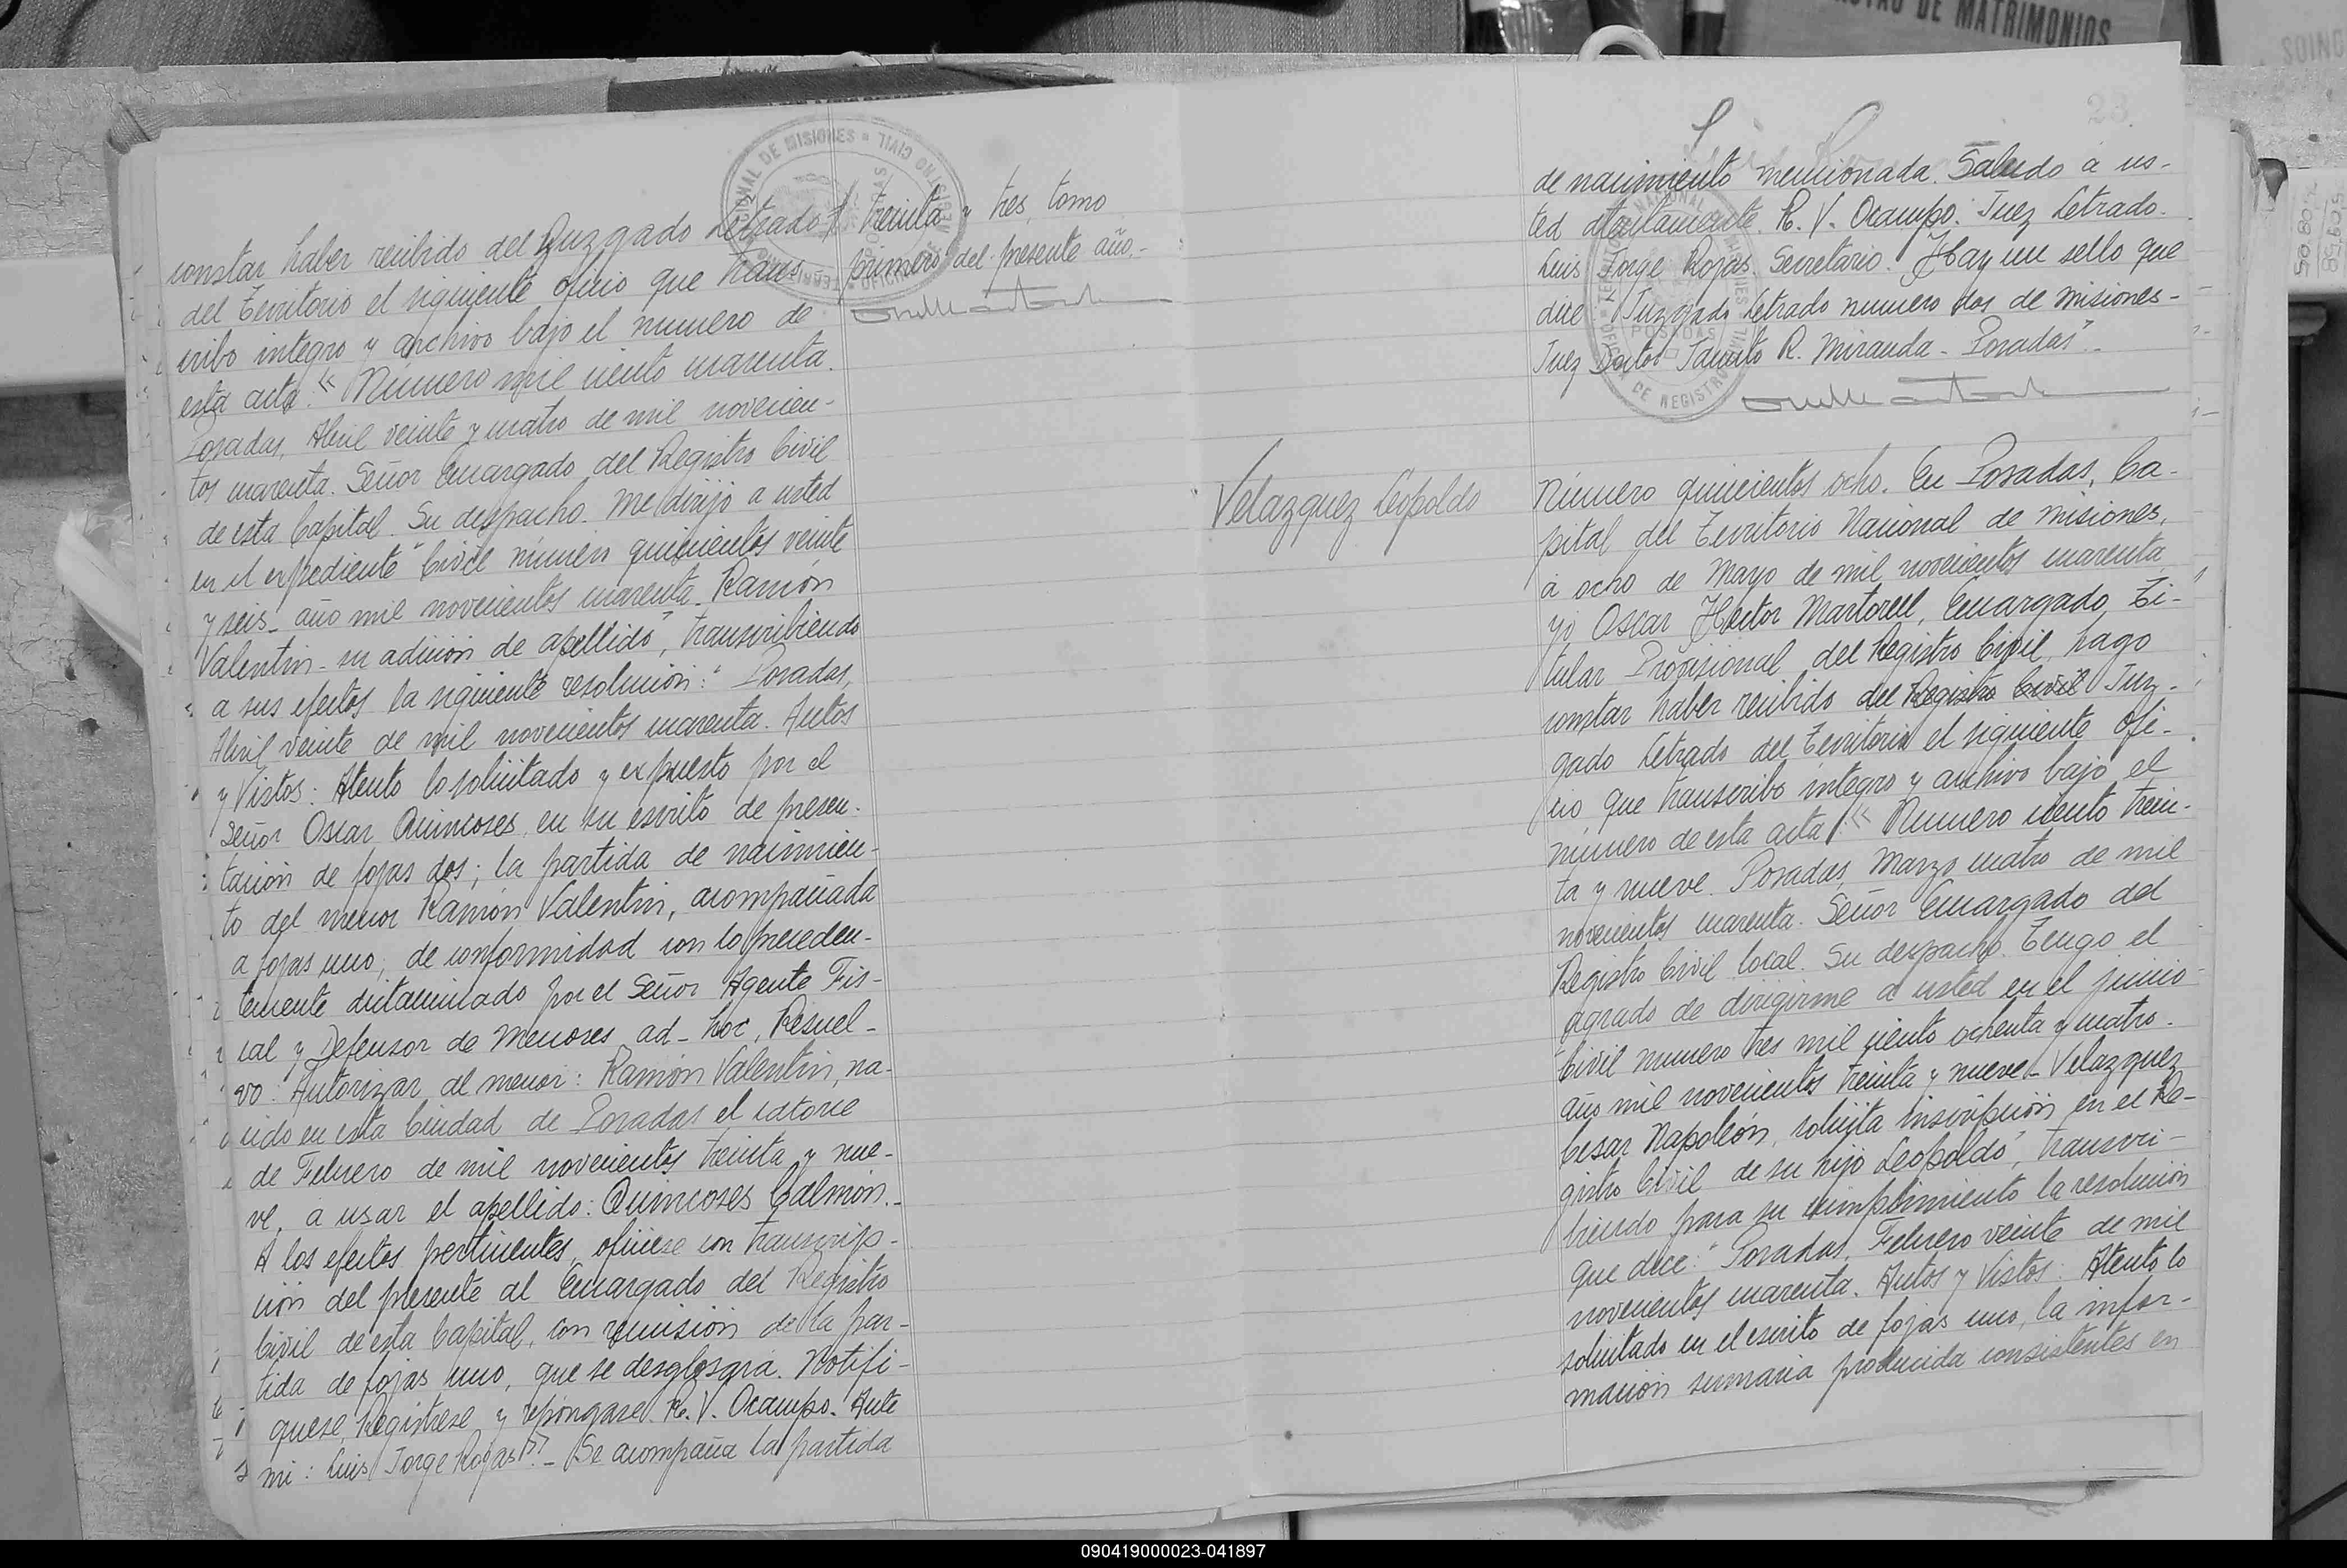 DE MATRIMONIOS
constar haber recibido del Juzgado Letrado
del Territorio el siguiente oficio que trans-
cribo integro y archivo bajo el numero de
esta acta: «Número mil ciento cuarenta.
Posadas, Abril veinte y cuatro de mil novecien-
tos cuarenta. Señor Encargado del Registro Civil
de esta Capital. Su despacho. Me dirijo a usted
en el expediente "Civil número quinientos veinte
y seis_ año mil novecientos cuarenta_ Ramón
Valentin_ su adición de apellido", transcribiendo
a sus efectos la siguiente resolución: "Posadas,
Abril veinte de mil novecientos cuarenta. Autos
y Vistos: Atento lo solicitado y expuesto por el
Señor Oscar Quincoses, en su escrito de presen-
tación de fojas dos; la partida de nacimien-
to del menor Ramón Valentin, acompañada
a fojas uno; de conformidad con lo preceden-
temente dictaminado por el Señor Agente Fis-
cal y Defensor de Menores ad-hoc, Resuel-
vo: Autorizar al menor: Ramón Valentin, na-
cido en esta Ciudad de Posadas el catorce
de Febrero de mil novecientos treinta y nue-
ve, a usar el apellido: Quincoses Calmon._
A los efectos pertinentes, ofíciese con transcrip-
ción del presente al Encargado del Registro
Civil de esta Capital, con remisión de la par-
tida de fojas uno, que se desglosará. Notifi-
quese, Registrese y repóngase. R. V. Ocampo. Ante
mi: Luis Jorge Rojas»._ Se acompaña la partida
treinta y tres, tomo
primero del presente año.-
23.
de nacimiento mencionada. Saludo a us-
ted atentamente. R. V. Ocampo. Juez Letrado.
Luis Jorge Rojas. Secretario. Hay un sello que
dice: Juzgado Letrado numero dos de Misiones-
Juez Doctor Jacinto R. Miranda - Posadas".-
Velazquez Leopoldo
Número quinientos ocho. En Posadas, Ca-
pital del Territorio Nacional de Misiones,
a ocho de Mayo de mil novecientos cuarenta,
yo Oscar Hector Martorell, Encargado Ti-
tular Provisional del Registro Civil, hago
constar haber recibido del Registro Civil Juz-
gado Letrado del Territorio el siguiente ofi-
cio que transcribo integro y archivo bajo el
número de esta acta: «Numero ciento trein-
ta y nueve. Posadas, Marzo cuatro de mil
novecientos cuarenta. Señor Encargado del
Registro Civil local. Su despacho. Tengo el
agrado de dirigirme a usted en el juicio
"Civil numero tres mil ciento ochenta y cuatro.
año mil novecientos treinta y nueve_ Velazquez
Cesar Napoleón, solicita inscripción en el Re-
gistro Civil de su hijo Leopoldo", transcri-
biendo para su cumplimiento la resolución
que dice: "Posadas, Febrero veinte de mil
novecientos cuarenta. Autos y Vistos: Atento lo
solicitado en el escrito de fojas uno, la infor-
mación sumaria producida consistentes en
090419000023-041897